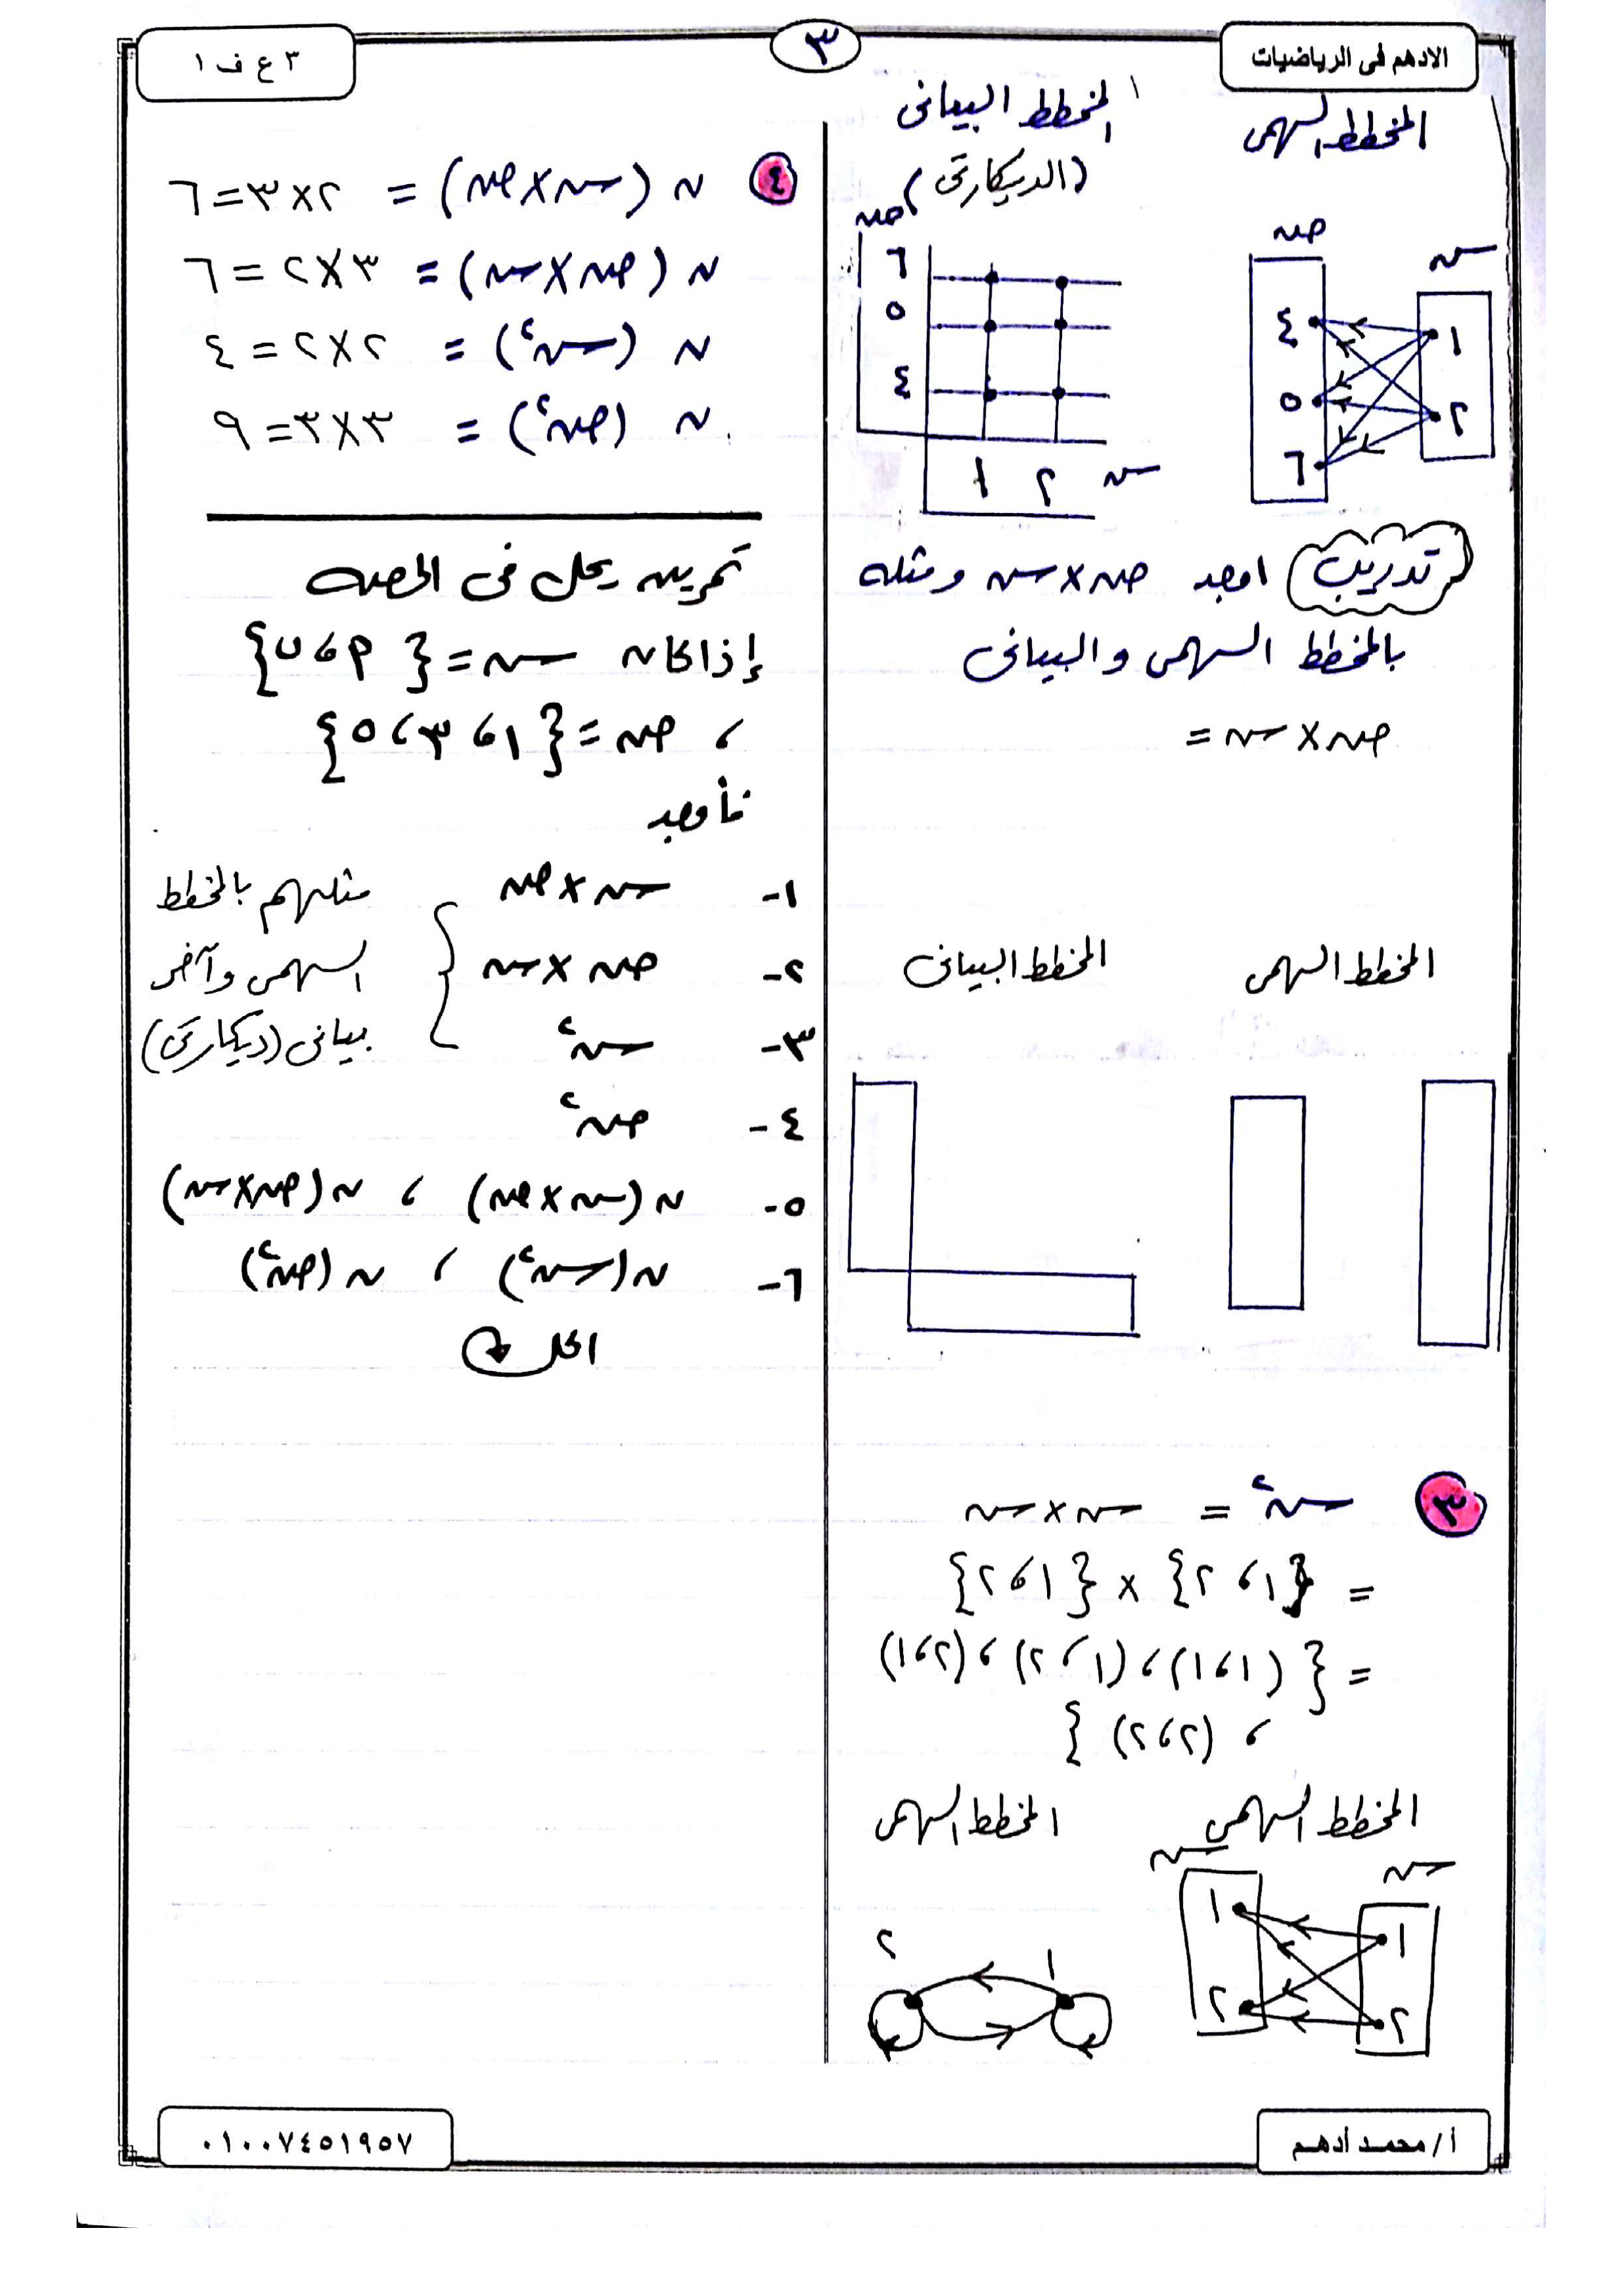 الادهم فى الرياضيات
٣
٣ ع ف ١
المخطط السهمى
المخطط البيانى
(الديكارتى)
صـ
سـ
٤
٥
٦
١
٢
صـ
٦
٥
٤
١ ٢ سـ
تدريب اوجد صـ × سـ ومثله
بالمخطط السهمى والبيانى
صـ × سـ =
المخطط السهمى
المخطط البيانى
٣ سـ٢ = سـ × سـ
= {١، ٢} × {١، ٢}
= { (١، ١)، (١، ٢)، (٢، ١)
، (٢، ٢) }
المخطط السهمى
المخطط السهمى
سـ
سـ
١
٢
١
٢
١
٢
٤ ن (سـ × صـ) = ٢ × ٣ = ٦
ن (صـ × سـ) = ٣ × ٢ = ٦
ن (سـ٢) = ٢ × ٢ = ٤
ن (صـ٢) = ٣ × ٣ = ٩
تمرين يحل فى الحصه
إذا كان سـ = { ٩، ب}
، صـ = {١، ٣، ٥}
فأوجد
١- سـ × صـ
٢- صـ × سـ
٣- سـ٢
مثلهم بالمخطط
السهمى وآخر
بيانى (ديكارتى)
٤- صـ٢
٥- ن (سـ × صـ) ، ن (صـ × سـ)
٦- ن (سـ٢) ، ن (صـ٢)
الحل
أ / محمـد أدهـم
٠١٠٠٧٤٥١٩٥٧